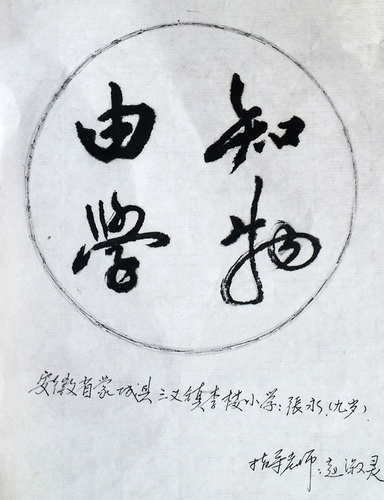 知物
由学
安徽省蒙城县三义镇李楼小学：張永（九岁）
指导老师：赵淑灵